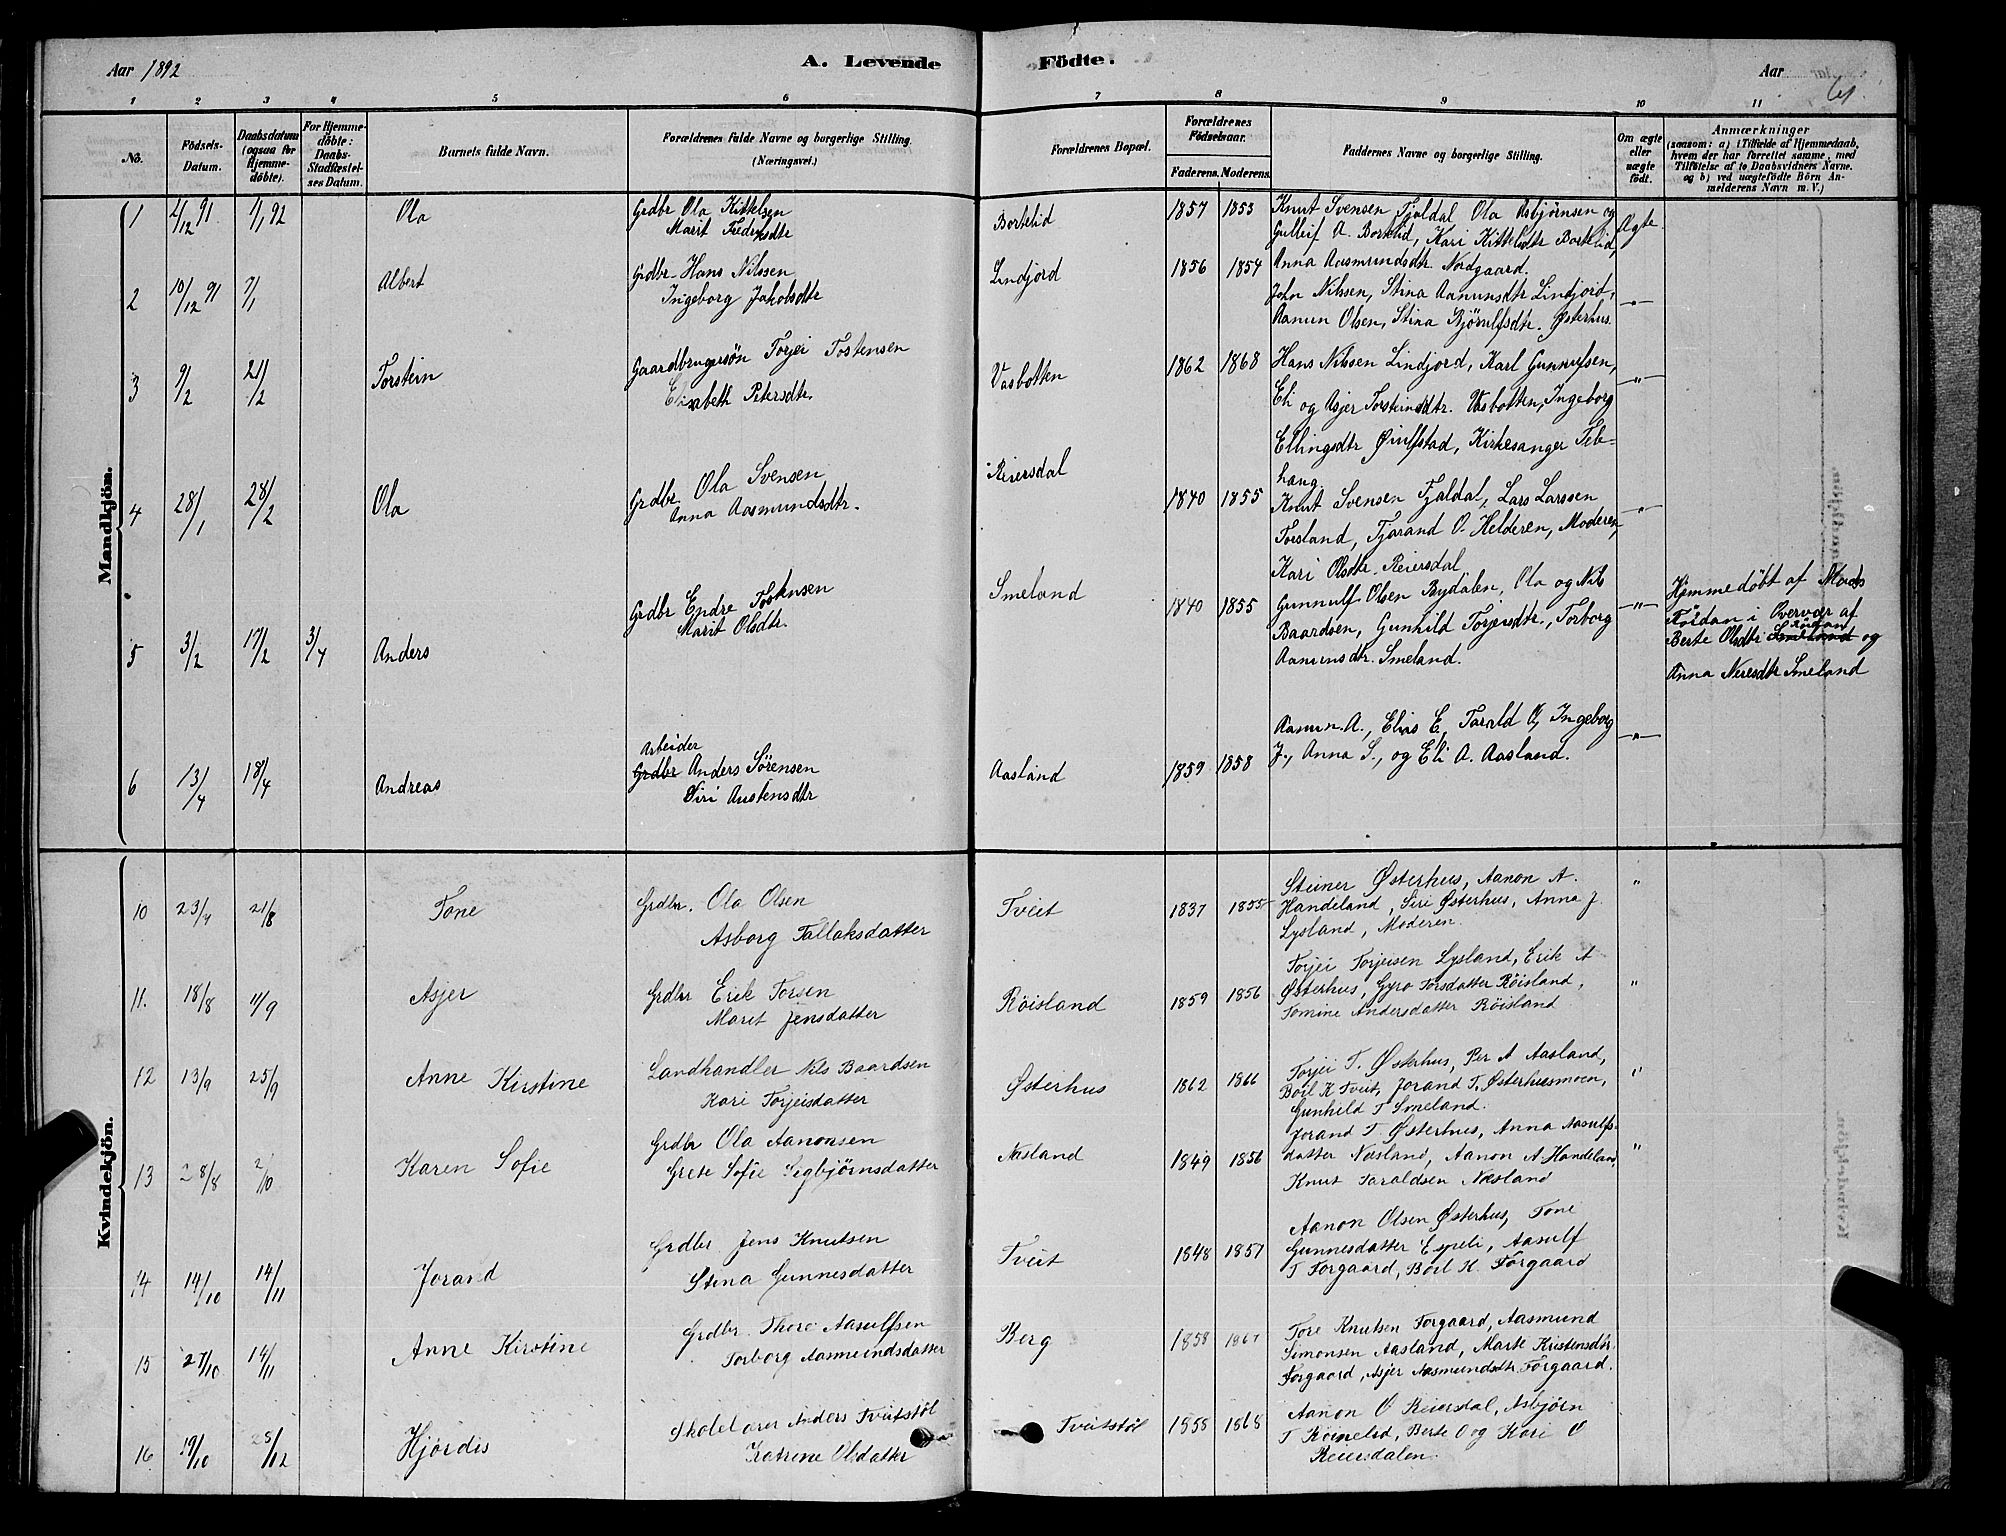 Aar 1892
A. Levende Födte.
Aar
61.
1 2 3 4 5 6 7 8 9 10 11
No.
Födsels-Datum.
Daabsdatum (ogsaa for Hjemme-döbte).
For Hjemme-döbte: Daabs-Stadfæstel-ses Datum.
Barnets fulde Navn.
Forældrenes fulde Navne og borgerlige Stilling.
(Næringsvei.)
Forældrenes Bopæl.
Forældrenes Födselsaar.
Faderens. Moderens.
Faddernes Navne og borgerlige Stilling.
Om ægte eller uægte födt.
Anmærkninger
(saasom: a) i Tilfælde af Hjemmedaab, hvem der har forrettet samme, med Tilföielse af to Daabsvidners Navne. og b) ved uægtefödte Börn An-melderens Navn m. V.)
Mandkjön.
1 2/12 91 1/1 92 Ola
Grdbr Ola Kittelsen
Marit Fredriksdtr
Bortelid 1857 1853
Knut Svensen Fjaldal Ola Asbjørnsen og
Gulleif A. Bortelid, Kari Kittelsdtr Bortelid,
Anna Aasmundsdtr. Nordgaard.
Ægte
2 10/12 91 7/1 Albert
Grdbr Hans Nilssen
Ingeborg Jakobsdtr
Lindjord 1856 1854
John Nilssen, Stina Aanunsdtr Lindjord,
Aanun Olsen, Stina Bjørulfsdtr. Østerhus.
—"—
3 9/2 21/2 Torstein
Gaardbrugersøn Torjei Tostensen
Elisabeth Petersdtr.
Vasbotten 1862 1868
Hans Nilssen Lindjord, Karl Gunnufsen,
Eli og Asjer Torsteinsdtr. Vasbotten, Ingeborg
Ellingsdtr Øiulfstad, Kirkesanger Fib-
hang.
—"—
4 28/1 28/2 Ola
Grdbr. Ola Svensen
Anna Aasmundsdtr.
Reiersdal 1840 1855
Knut Svensen Fjaldal, Lars Larssen
Forsland, Tjarand O. Helderen, Moderen,
Kari Olsdtr. Reiersdal
—"—
5 3/2 17/2 3/4 Anders
Grdbr Endre Tostensen
Marit Olsdtr.
Smeland 1840 1855
Gunnulf Olsen Bydalen, Ola og Nils
Baardsen, Gunhild Torjeisdtr., Torborg
Aanunsdtr. Smeland.
—"—
Hjemmedøbt af Mads
Røsdan i Overvær af
Berte Olsdtr Smeland og
Anna Neresdtr Smeland
6 13/4 18/4 Andreas
Arbeider
Grdbr Anders Sørensen
Siri Austensdtr
Aasland 1859 1858
Aanun A., Elias E, Tarald O, Ingeborg
J., Anna S., og Eli A. Aasland.
—"—
Kvindekjön.
10 23/4 21/8 Tone
Grdbr. Ola Olsen
Asborg Tallaksdatter
Tveit 1837 1855
Steiner Østerhus, Aanon A.
Handeland, Siri Østerhus, Anna J.
Lysland, Moderen.
"
11. 18/8 11/9 Asjer
Grdbr Erik Torsen
Marit Jensdatter
Röisland 1859 1856
Torjei Torjeisen Lysland, Erik A
Østerhus, Gyro Torsdatter Röisland,
Tomine Andersdatter Röisland
"
12 13/9 25/9 Anne Kirstine
Landhandler Nils Baardsen
Kari Torjeisdatter
Østerhus 1862 1866
Torjei T. Østerhus, Per A Aasland,
Boil K Tveit, Jorand T. Østerhusmoen,
Gunhild T Smeland.
"
13 28/8 2/10 Karen Sofie
Grdbr Ola Aanonsen
Grete Sofie Segbjörnsdatter
Næsland 1849 1856
Jorand T Østerhus, Anna Aasulfs-
datter Næsland, Aanon A Handeland,
Knut Taraldsen Næsland
"
14 14/10 14/11 Jorand
Grdbr Jens Knutsen
Stina Gunnesdatter
Tveit 1848 1857
Aanon Olsen Østerhus, Tone
Gunnesdatter Espeli, Aasulf
T Förgaard, Boil H. Förgaard
15 27/10 14/11 Anne Kirstine
Grdbr. Thore Aasulfsen
Torborg Aasmundsdatter
Berg 1858 1867
Tore Knutsen Förgaard, Aasmund
Simonsen Aasland, Marte Kristensdtr.
Förgaard, Asjer Aasmundsdtr Förgaard.
16 19/10 25/12 Hjördis
Skolelærer Anders Tveitstöl
Katrine Olsdatter
Tveitstöl 1858 1868
Aanon O Reiersdal, Asbjörn
T Röinelid, Berte O og Kari O
Reiersdalen.